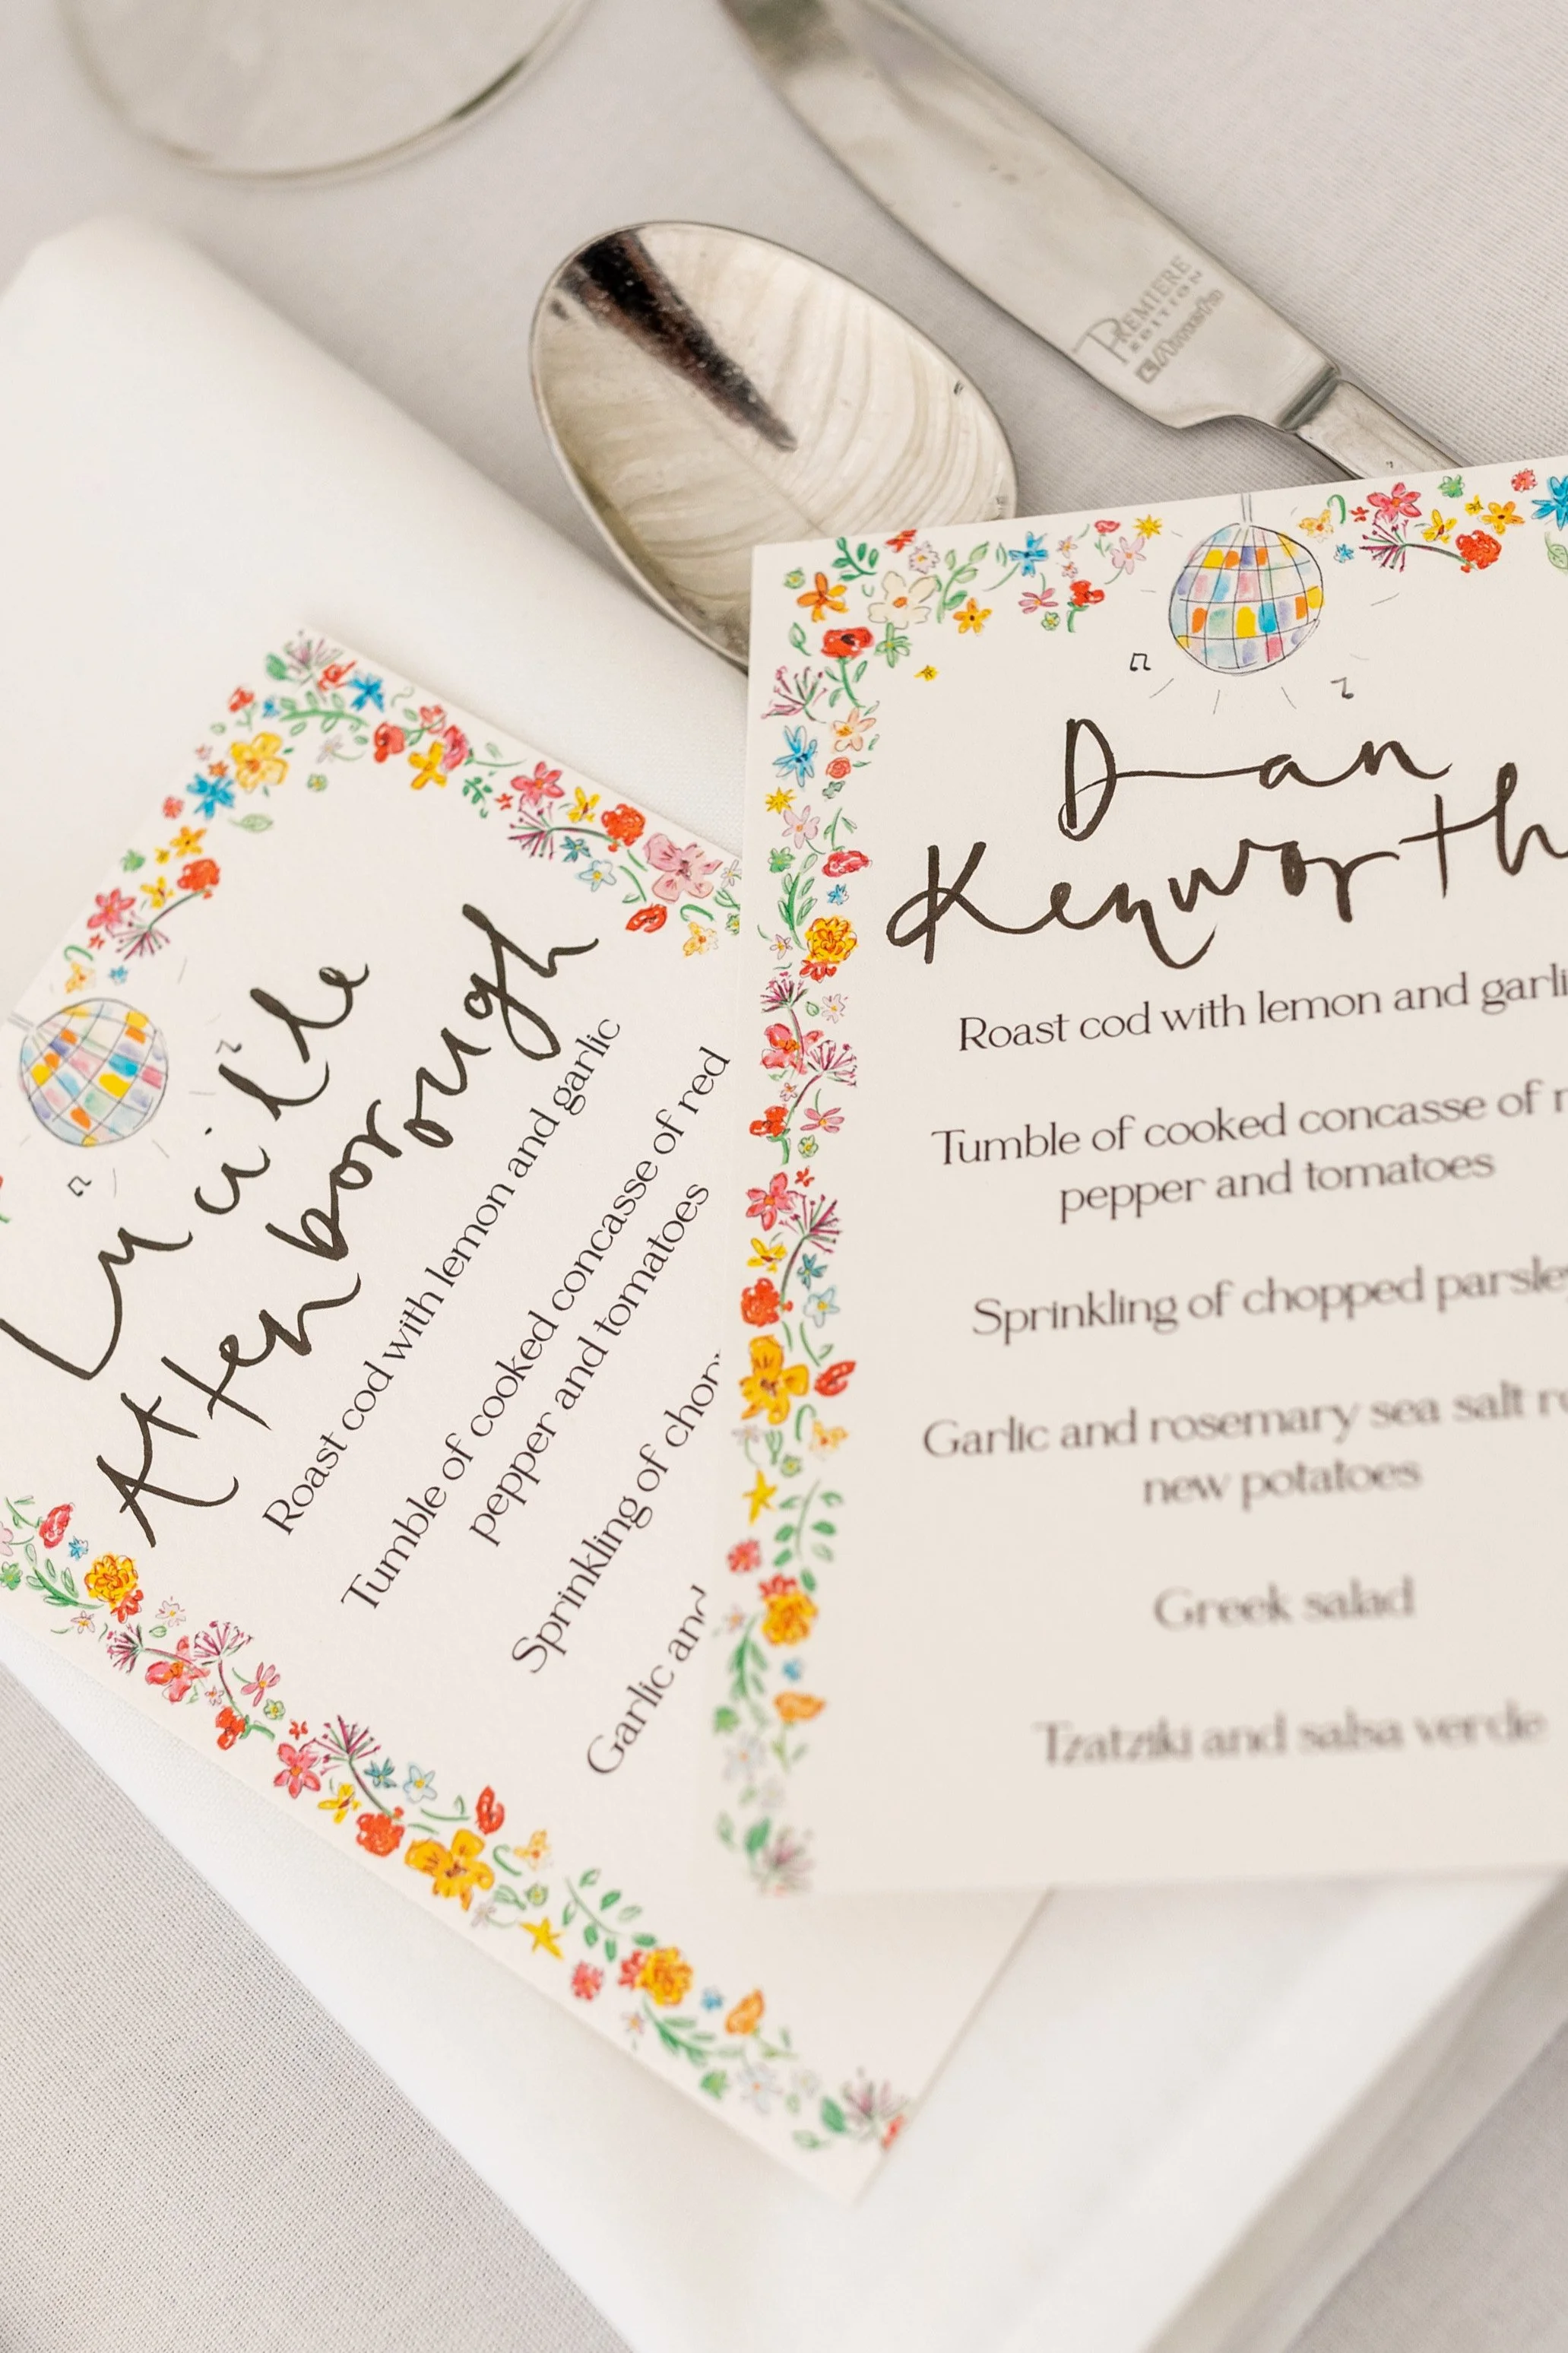 PREMIERE
EDITION
Lucille
Attenborough
Roast cod with lemon and garlic
Tumble of cooked concasse of red
pepper and tomatoes
Sprinkling of
Garlic and
Dan
Kenworth
Roast cod with lemon and garli
Tumble of cooked concasse of r
pepper and tomatoes
Sprinkling of chopped parsle
Garlic and rosemary sea salt r
new potatoes
Greek salad
Tzatziki and salsa verde